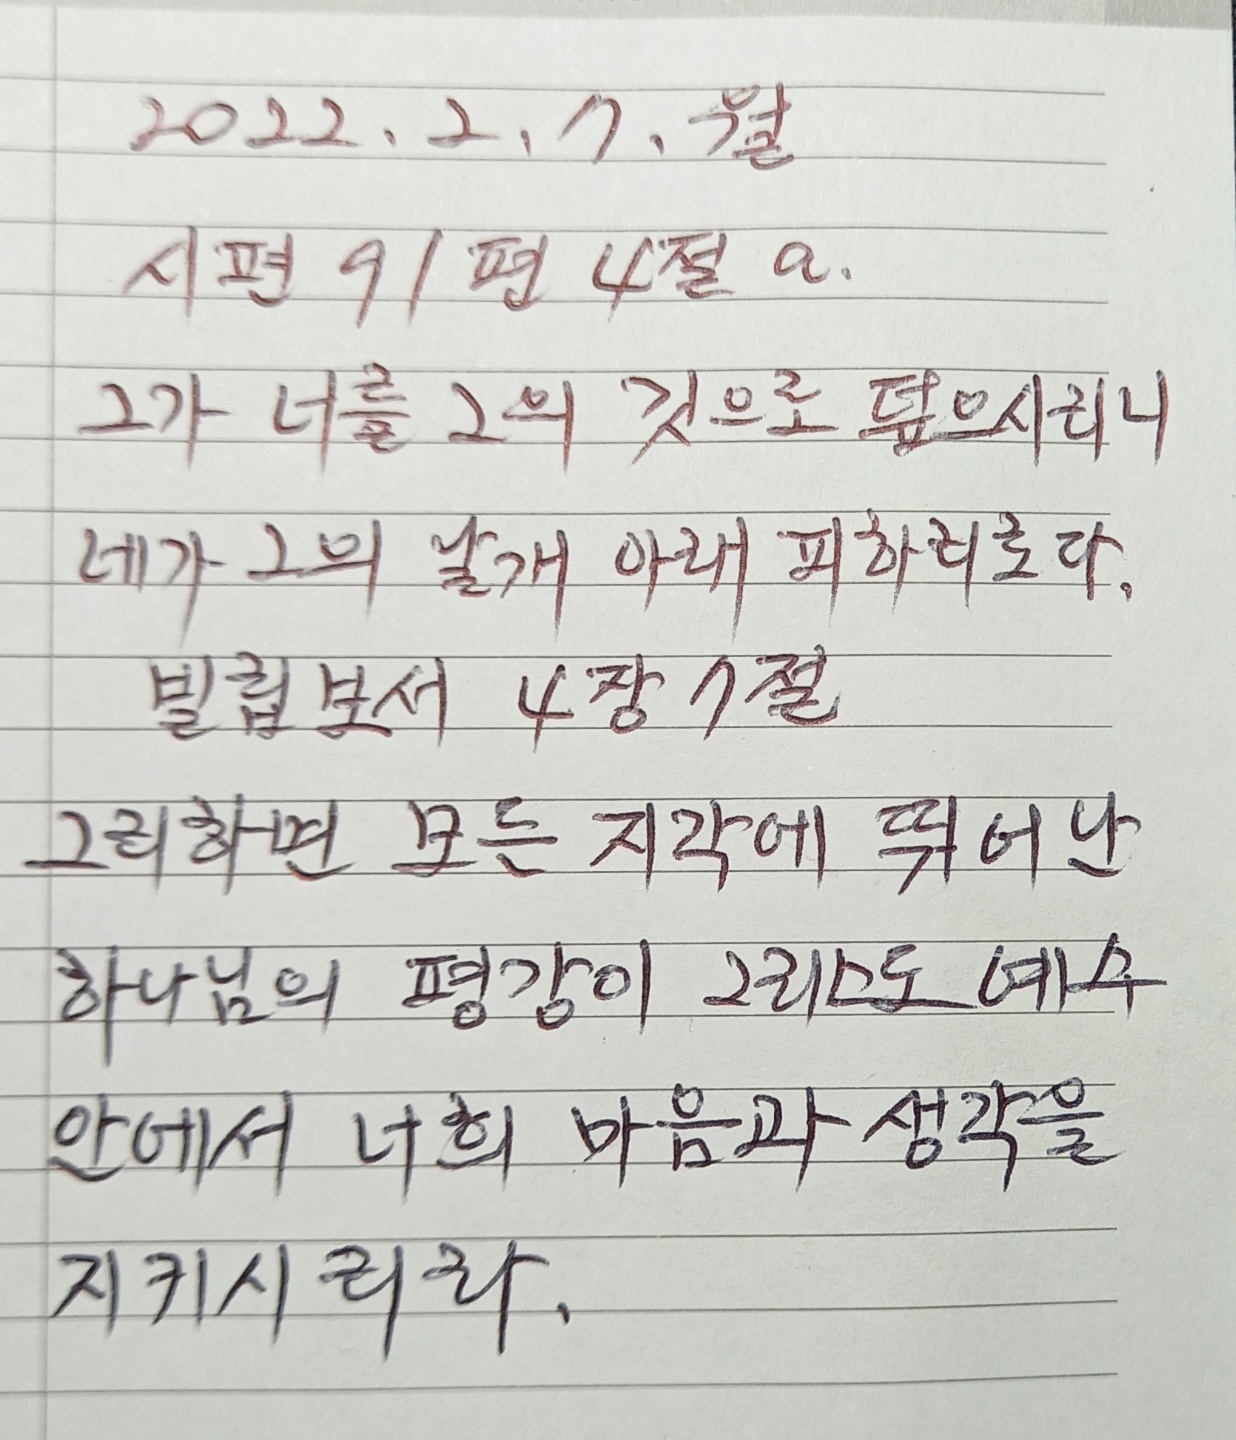 2022. 2. 7. 월
시편 91편 4절 a.
그가 너를 그의 것으로 덮으시리니
네가 그의 날개 아래 피하리로다.
빌립보서 4장 7절
그리하면 모든 지각에 뛰어난
하나님의 평강이 그리스도 예수
안에서 너희 마음과 생각을
지키시리라.